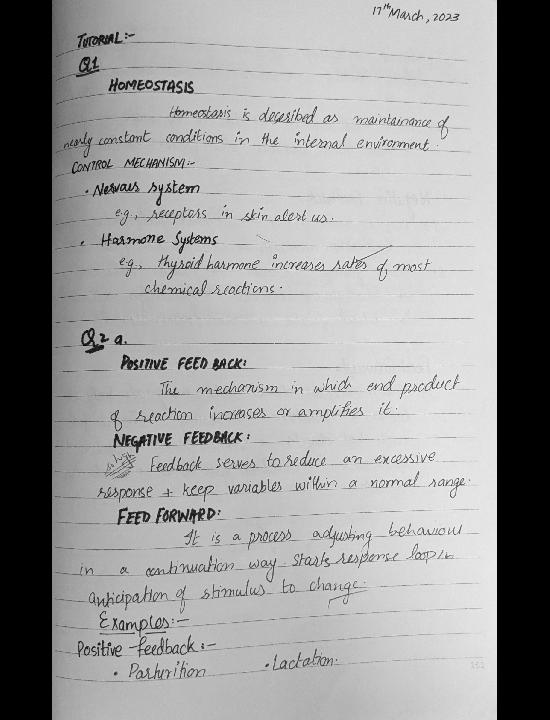 17th March, 2023
TUTORIAL:-
Q1
HOMEOSTASIS
Homeostasis is described as maintainance of
nearly constant conditions in the internal environment.
CONTROL MECHANISM:-
• Nervous system
e.g., receptors in skin alert us.
• Harmone Systems
e.g., thyroid harmone increases rates of most
chemical reactions.
Q2 a.
POSITIVE FEED BACK:
The mechanism in which end product
of reaction increases or amplifies it.
NEGATIVE FEEDBACK:
Feedback serves to reduce an excessive
response + keep variables within a normal range.
FEED FORWARD:
It is a process adjusting behaviour
in a continuation way starts response loop in
anticipation of stimulus to change.
Examples:-
Positive feedback:-
• Parturition • Lactation.